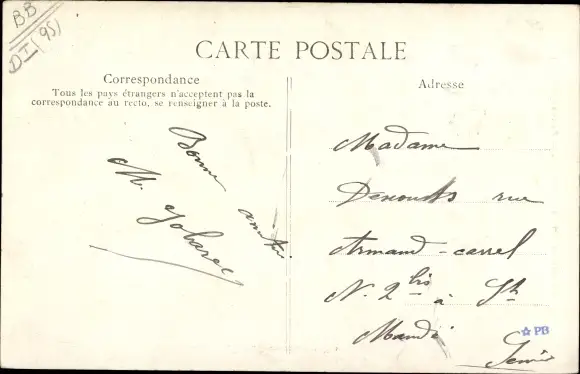 BB
DI (95)
CARTE POSTALE
Correspondance
Tous les pays étrangers n'acceptent pas la
correspondance au recto, se renseigner à la poste.
Bonne amitié
M.
Adresse
Madame
rue
Armand-carrel
N. 2 bis à St
Mandé
☆ PB
Seine